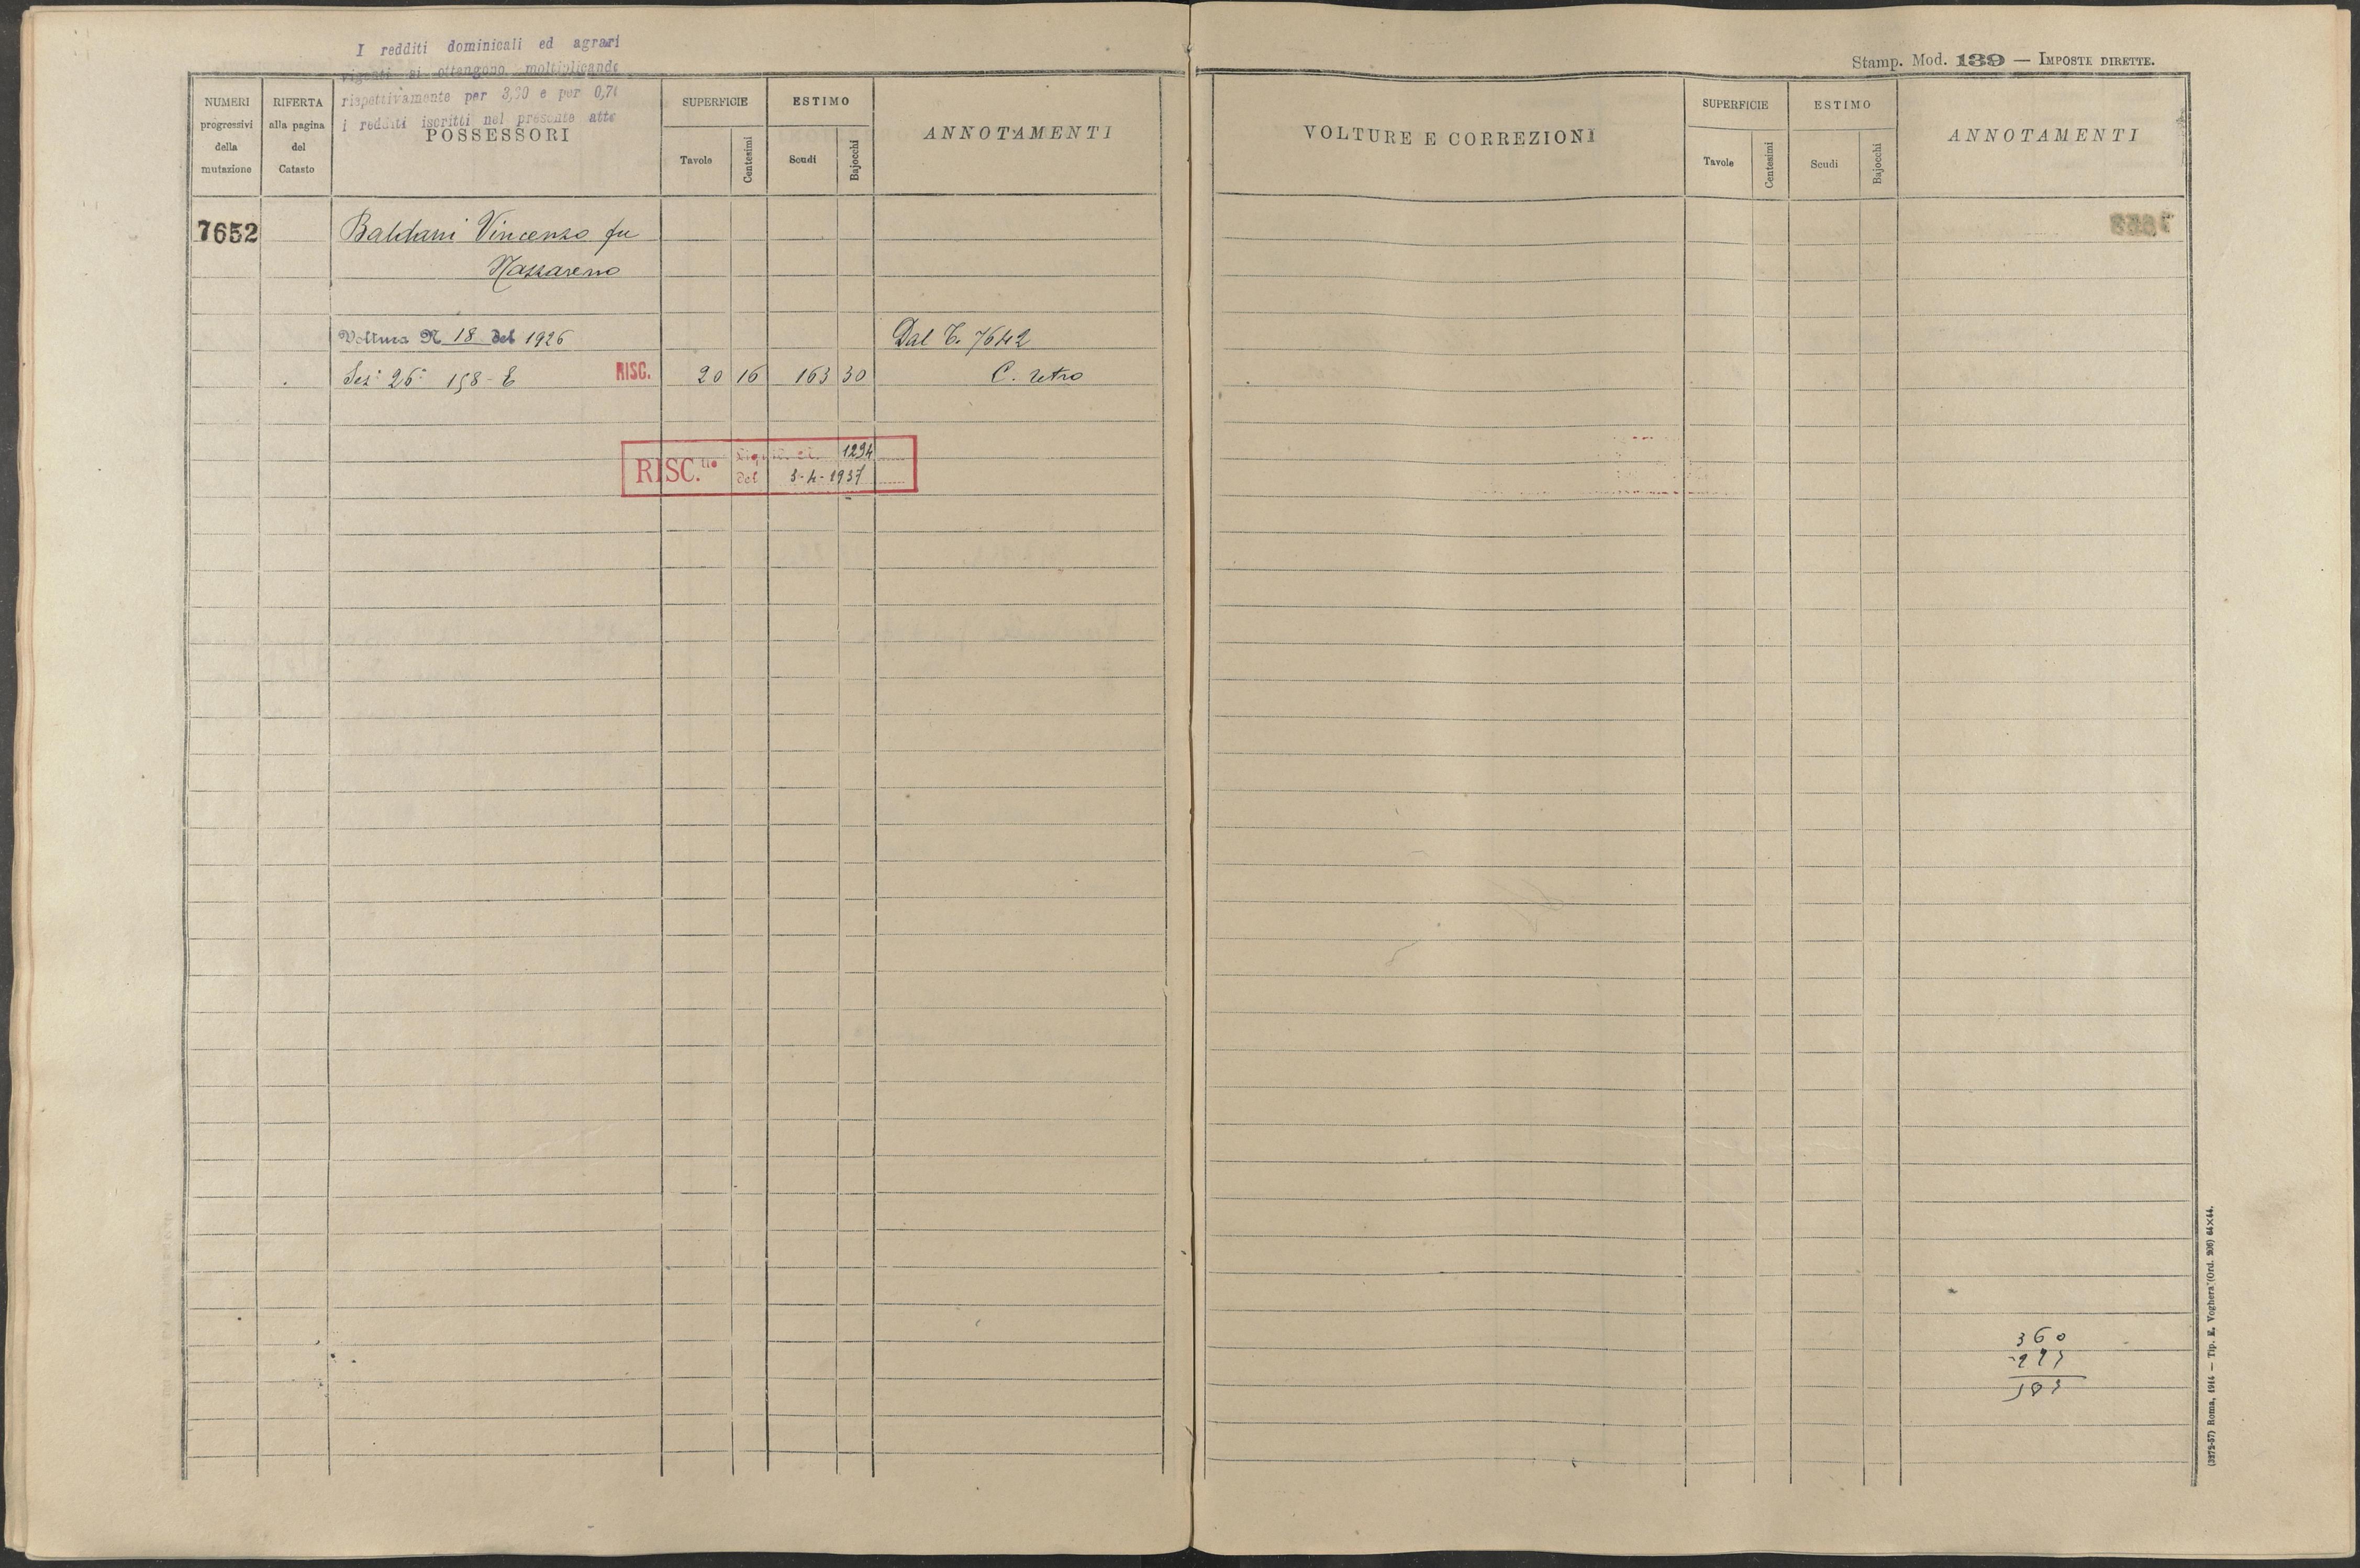 I redditi dominicali ed agrari
vigenti si ottengono moltiplicando
rispettivamente per 3,20 e per 0,70
i redditi iscritti nel presente atto
NUMERI progressivi della mutazione
RIFERTA alla pagina del Catasto
POSSESSORI
SUPERFICIE
Tavole
Centesimi
ESTIMO
Scudi
Bajocchi
ANNOTAMENTI
7652
Baldani Vincenzo fu
Nazzareno
Voltura N 18 del 1926
Dal T. 7642
Sez: 26: 158-E RISC. 20 16 163 30 C. retro
RISC.to 1294
del 3-4-1937
Stamp. Mod. 139 — IMPOSTE DIRETTE.
VOLTURE E CORREZIONI
SUPERFICIE
Tavole
Centesimi
ESTIMO
Scudi
Bajocchi
ANNOTAMENTI
360
(3272-57) Roma, 1914 — Tip. E. Voghera (Ord. 206) 64×44.